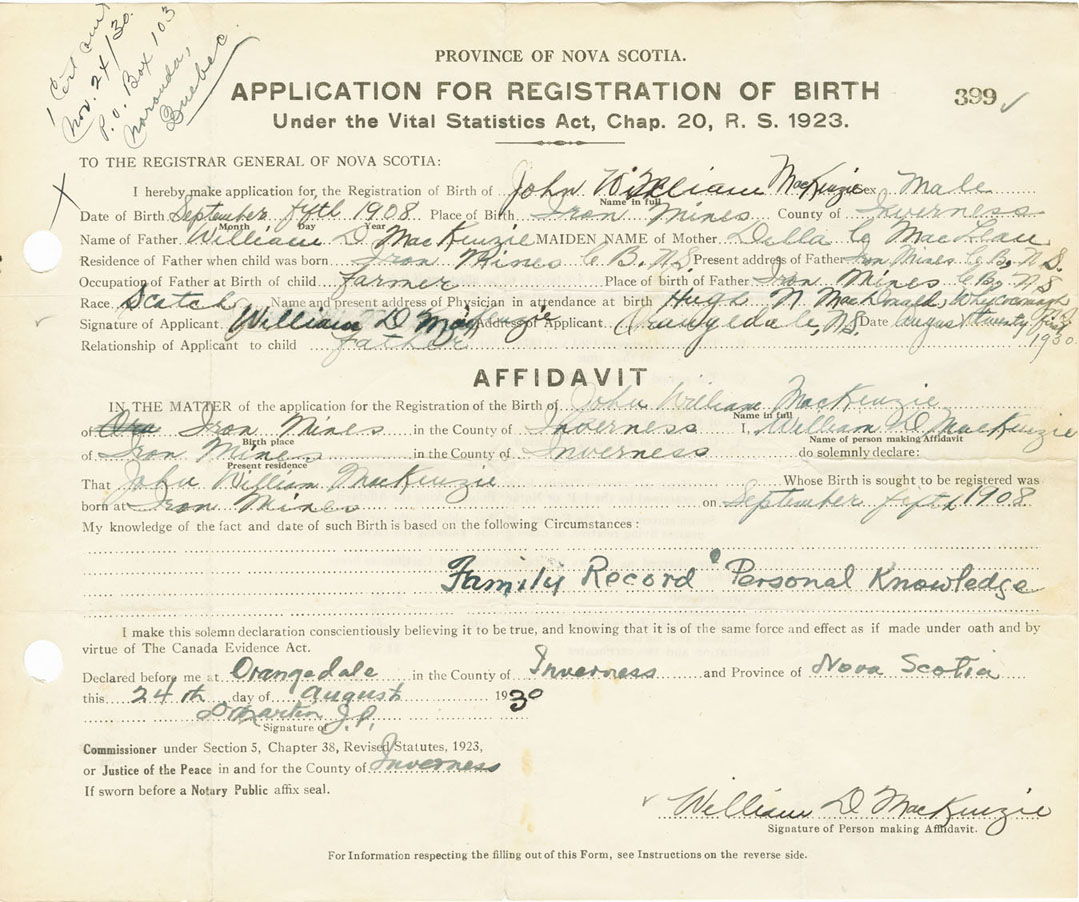 1 Cert sent
Nov. 24/30.
P.O. Box 103
Noranda,
Quebec
PROVINCE OF NOVA SCOTIA.
APPLICATION FOR REGISTRATION OF BIRTH
399 ✓
Under the Vital Statistics Act, Chap. 20, R. S. 1923.
TO THE REGISTRAR GENERAL OF NOVA SCOTIA:
X
I hereby make application for the Registration of Birth of John William MacKenzie Sex Male
Name in full
Date of Birth September fifth 1908 Place of Birth Iron Mines County of Inverness
Month Day Year
Name of Father William D MacKenzie MAIDEN NAME of Mother Della C MacLean
Residence of Father when child was born Iron Mines C B. N.S. Present address of Father Iron Mines C B. N.S.
Occupation of Father at Birth of child farmer Place of birth of Father Iron Mines C B. N S
Race Scotch Name and present address of Physician in attendance at birth Hugh N MacDonald, Whycocomagh N.S
Signature of Applicant William D MacKenzie Address of Applicant Orangedale, N.S. Date August twenty first 1930
Relationship of Applicant to child Father
AFFIDAVIT
IN THE MATTER of the application for the Registration of the Birth of John William MacKenzie
Name in full
of Iron Mines in the County of Inverness I, William D MacKenzie
Birth place Name of person making Affidavit
of Iron Mines in the County of Inverness do solemnly declare:
Present residence
That John William MacKenzie Whose Birth is sought to be registered was
born at Iron Mines on September fifth 1908
My knowledge of the fact and date of such Birth is based on the following Circumstances:
Family Record Personal Knowledge
I make this solemn declaration conscientiously believing it to be true, and knowing that it is of the same force and effect as if made under oath and by
virtue of The Canada Evidence Act.
Declared before me at Orangedale in the County of Inverness and Province of Nova Scotia
this 24th day of August 1930
D Martin J.P.
Signature of
Commissioner under Section 5, Chapter 38, Revised Statutes, 1923,
or Justice of the Peace in and for the County of Inverness
If sworn before a Notary Public affix seal.
William D MacKenzie
Signature of Person making Affidavit.
For Information respecting the filling out of this Form, see Instructions on the reverse side.